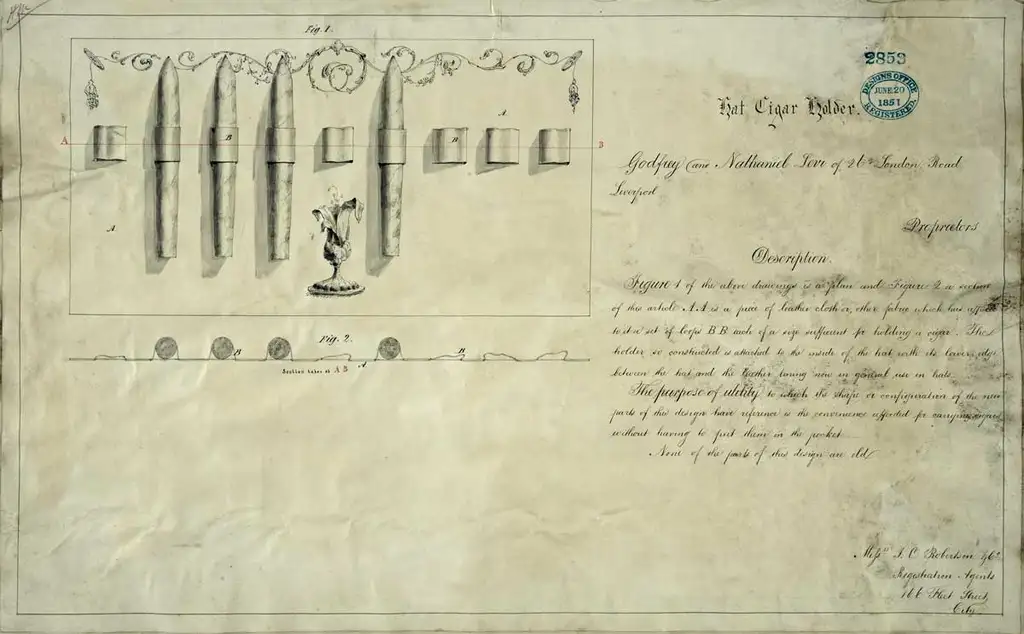 Fig. 1.
2853
DESIGNS OFFICE
JUNE 20
1851
REGISTERED.
Hat Cigar Holder.
A
B
B
A
B
A
Godfrey and Nathaniel Levi of 26 London Road
Liverpool
Proprietors
Description.
Figure 1 of the above drawings is a plan and Figure 2 a section
of this article A A is a piece of leather cloth or other fabric which has affixed
to it a set of loops B B each of a size sufficient for holding a cigar. The
holder so constructed is attached to the inside of the hat with its lower edge
between the hat and the leather lining now in general use in hats.
The purpose of utility to which the shape or configuration of the new
parts of this design have reference is the convenience afforded for carrying cigars
without having to put them in the pocket.
None of the parts of this design are old
Fig. 2.
B
B
A
Section taken at A B
Messrs J. C. Robertson & Co
Registration Agents
166 Fleet Street,
City